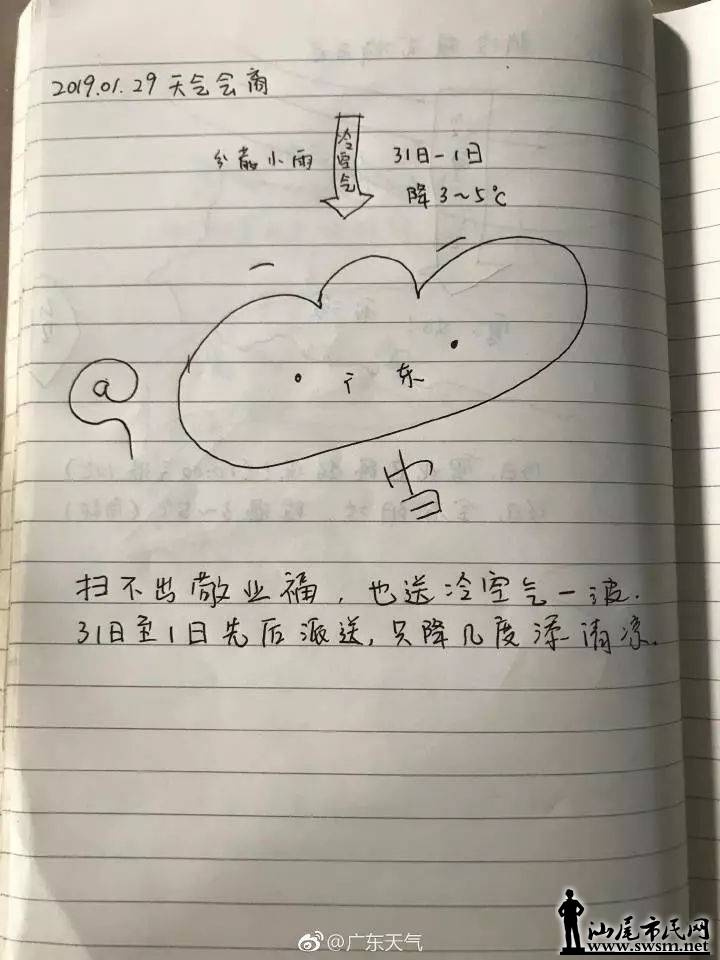 2019.01.29 天气会商
分散小雨
冷空气
31日-1日
降3~5℃
a
广东
扫不出敬业福，也送冷空气一波.
31日至1日先后派送,只降几度添清凉.
@广东天气
汕尾市民网
www.swsm.net